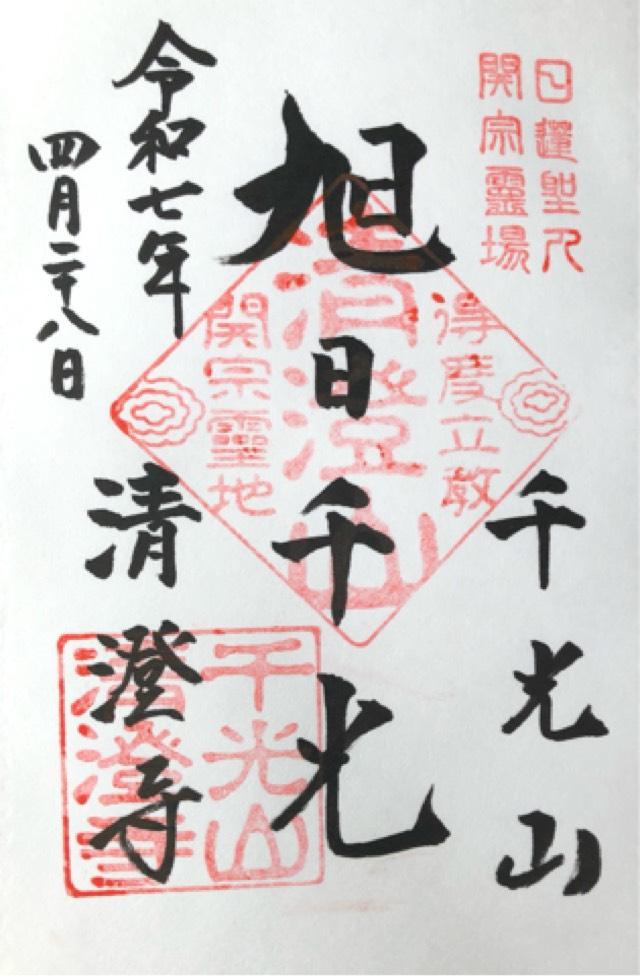 日蓮聖人
開宗靈場
千光山
旭日千光
得度立教
清澄山
開宗靈地
令和七年
四月二十八日
清澄寺
千光山
清澄寺